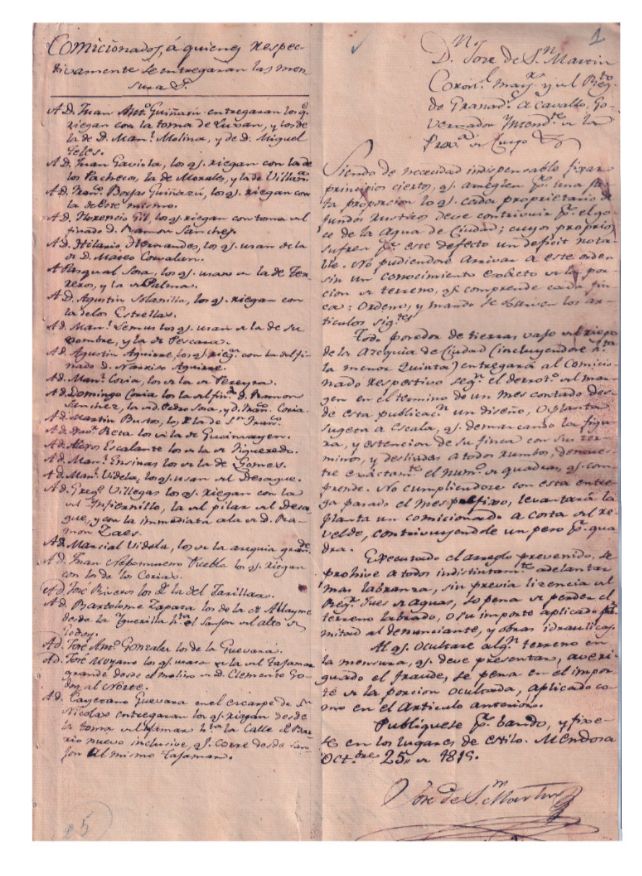 Comicionados, á quienes respec-
tivamente se entregaran las men-
suras.
A D. Juan Ant.º Guiñazú entregaran los q.
riegan con la toma de Luxan, y los de
la de D. Man.l Molina, y de D. Miguel
Teles.
A D. Juan Gavila, los q.s riegan con la de
los Pacheco, la de Morales, y la de
A D. Fran.co Borja Guiñazú, los q.s riegan con
la de mismo.
A D. Florencio Gil, los q.s riegan con toma del
finado D. Ramon Sanches.
A D. Hilario Hernandes, los q.s usan de la
de D. Mateo
A Pasqual Sosa, los q.s usan de la de
y la de Palma.
A D. Agustin los q.s riegan con
la de los Estrellas.
A D. Man.l Lemus los q.s usan de la de su
nombre, y la de Pescara.
A D. Agustin Aguirre, los q.s rieg.n con la del fi-
nado D. Narciso Aguirre.
A D. Man.l Coria, los de la de Pereyra.
A D. Domingo Coria los de la del fin.º D. Ramon
Sanchez, la de D. Pedro Sosa, y D. Fran.co Coria.
A D. Martin Busto, los de la de S.n Fran.co
A D. Reta los de la de
A D. Alexo Escalante los de la de Figueredo.
A D. Man.l Ensinas los de la de Gomes.
A D. Man.l Videla, los q.s usan del Desague.
A D. Greg.º Villegas los q.s riegan con la
del Infiernillo, la del pilar del desa-
gue, y con la immediata a la de D. Ra-
mon
A D. Marcial Videla, los de la asequia gran.de
A D. Juan Nepomuceno Puebla los q.s riegan
con la de los Corias.
A D. José Riveros los de la del
A D. Bartolome Zapata los de la de Allayme
desde la Yguerilla h.ta el Sanjon del alto de
Godoy.
A D. José Ant.º Gonzales los de la Guevara.
A D. José Moyano los q.s usan de la del Tajamar
grande desde el molino de D. Clemente Go-
doy al Norte.
A D. Cayetano Guevara en el escarpe de S.n
Nicolas entregaran los q.s riegan desde
la toma del Tajamar h.ta la Calle del Bar-
rio nuevo inclusive, q.s corre desde
al mismo Tajamar.
25
1
D.n José de S.n Martin
Coron.l may.r y del Reg.to
de Granad.s a Cavallo, Go-
vernador Intend.te de la
Prov.a de Cuyo &
Siendo de necesidad indispensable fixar
principios ciertos, q.s aseguren p.r una jus-
ta proporcion lo q.s cada proprietario de
fundos rusticos deve contrivuir p.r el go-
se de la Agua de Ciudad; cuyos proprios
sufren p.r este defecto un deficit nota-
ble. No pudiendose arrivar a este orden
sin un conocimiento exacto de la por-
cion de terreno, q.s comprende cada fin-
ca: Ordeno, y mando se obserben los ar-
ticulos sig.tes
Todo poseedor de tierras vajo del riego
de la Asequia de Ciudad (incluyendose á
la menor Quinta) entregará al Comicio-
nado respectivo seg.n el derrot.º del mar-
gen en el termino de un mes contado des-
de esta publicac.n un diseño, ó planta
sugeta a Escala, q.s demarcando la figu-
ra, y estencion de su finca con sus ter-
minos, y deslindes a todos rumbos, demues-
tre exactam.te el num.º de quadras q.s com-
prende. No cumpliendose con esta entre-
ga pasado el mes prefixo, levantará la
planta un comicionado a costa del re-
velde, contrivuyendole un peso p.r qua-
dra.
Executado el arreglo prevenido, se
prohive a todos indistintam.te adelantar
mas labranza, sin previa licencia del
Reg.r Jues de Aguas, so pena de perder el
terreno labrado, ó su importe aplicado p.r
mitad al denunciante, y obras idraulicas.
Al q.s ocultare alg.n terreno en
la mensura, q.s deve presentar, averi-
guado el fraude, se pena en el impor-
te de la porcion ocultada, aplicado co-
mo en el Articulo anterior.
Publiquese p.r bando, y fixe-
se en los lugares de estilo. Mendosa
Oct.bre 25,, de 1815.
José de S.n Martin